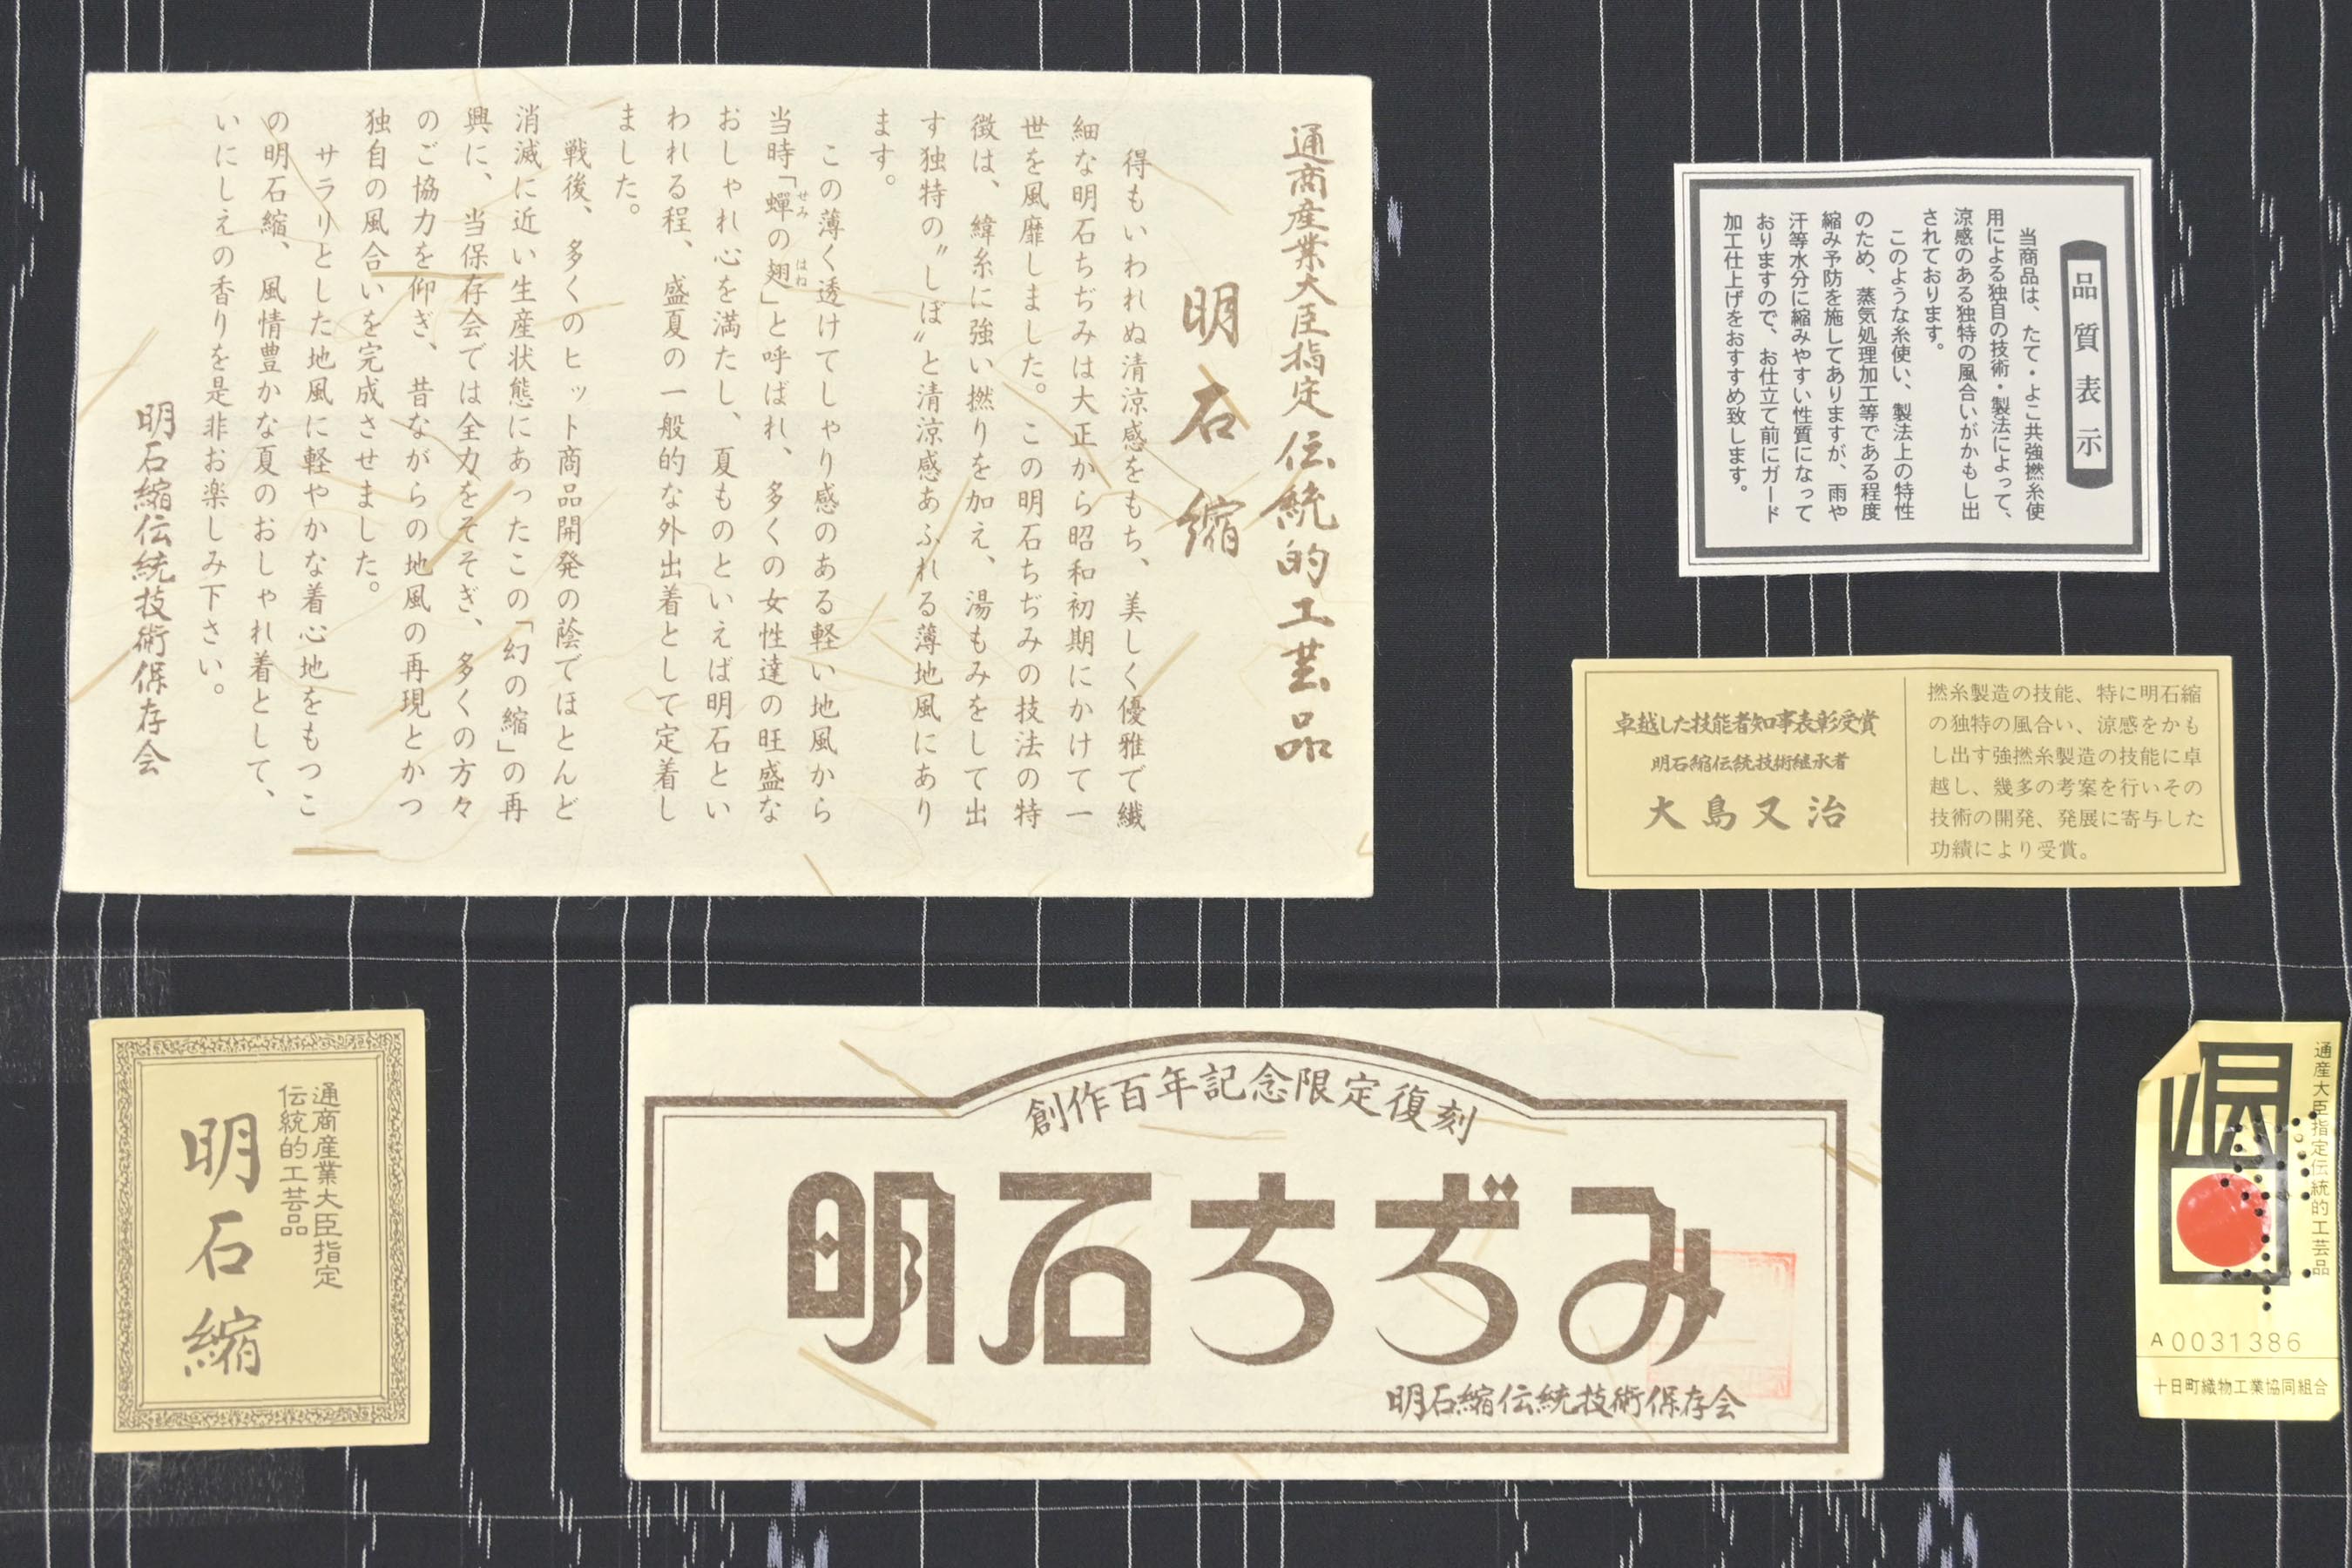 通商産業大臣指定 伝統的工芸品
明石縮
得もいわれぬ清涼感をもち、美しく優雅で繊
細な明石ちぢみは大正から昭和初期にかけて一
世を風靡しました。この明石ちぢみの技法の特
徴は、緯糸に強い撚りを加え、湯もみをして出
す独特の〝しぼ〟と清涼感あふれる薄地風にあり
ます。
この薄く透けてしゃり感のある軽い地風から
当時「蟬の翅」と呼ばれ、多くの女性達の旺盛な
せみ
はね
おしゃれ心を満たし、夏ものといえば明石とい
われる程、盛夏の一般的な外出着として定着し
ました。
戦後、多くのヒット商品開発の蔭でほとんど
消滅に近い生産状態にあったこの「幻の縮」の再
興に、当保存会では全力をそそぎ、多くの方々
のご協力を仰ぎ、昔ながらの地風の再現とかつ
独自の風合いを完成させました。
サラリとした地風に軽やかな着心地をもつこ
の明石縮、風情豊かな夏のおしゃれ着として、
いにしえの香りを是非お楽しみ下さい。
明石縮伝統技術保存会
品質表示
当商品は、たて・よこ共強撚糸使
用による独自の技術・製法によって、
涼感のある独特の風合いがかもし出
されております。
このような糸使い、製法上の特性
のため、蒸気処理加工等である程度
縮み予防を施してありますが、雨や
汗等水分に縮みやすい性質になって
おりますので、お仕立て前にガード
加工仕上げをおすすめ致します。
卓越した技能者知事表彰受賞
明石縮伝統技術継承者
大島又治
撚糸製造の技能、特に明石縮
の独特の風合い、涼感をかも
し出す強撚糸製造の技能に卓
越し、幾多の考案を行いその
技術の開発、発展に寄与した
功績により受賞。
通商産業大臣指定
伝統的工芸品
明石縮
創作百年記念限定復刻
明石ちぢみ
明石縮伝統技術保存会
通産大臣指定伝統的工芸品
A0031386
十日町織物工業協同組合